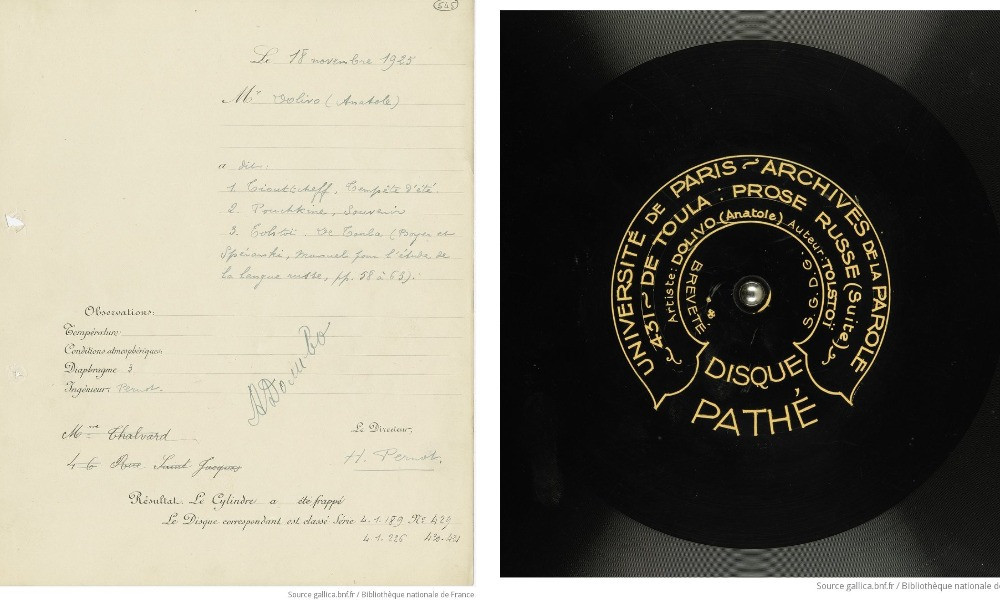 545
Le 18 novembre 1925
Mr Dolivo (Anatole)
a dit:
1. Tioutcheff, Tempête d'été.
2. Pouchkine, Souvenir
3. Tolstoï. De Toula (Boyer et
Spéranski, manuel pour l'étude de
la langue russe, pp. 58 à 63).
Observations:
Température
Conditions atmosphériques
Diaphragme 3
Ingénieur: Pernot.
Mme Thalvard
46 Rue Saint Jacques
Le Directeur,
H. Pernot.
Résultat. Le Cylindre a été frappé
Le Disque correspondant est classé Série 4.1.189 No 429
4.1.226 430-431
Source gallica.bnf.fr / Bibliothèque nationale de France
UNIVERSITÉ DE PARIS ~ ARCHIVES DE LA PAROLE
~ 431 ~ DE TOULA : PROSE RUSSE (Suite) ~
Artiste: DOLIVO (Anatole) Auteur: TOLSTOÏ
BREVETÉ S.G.D.G.
DISQUE
PATHÉ
Source gallica.bnf.fr / Bibliothèque nationale de